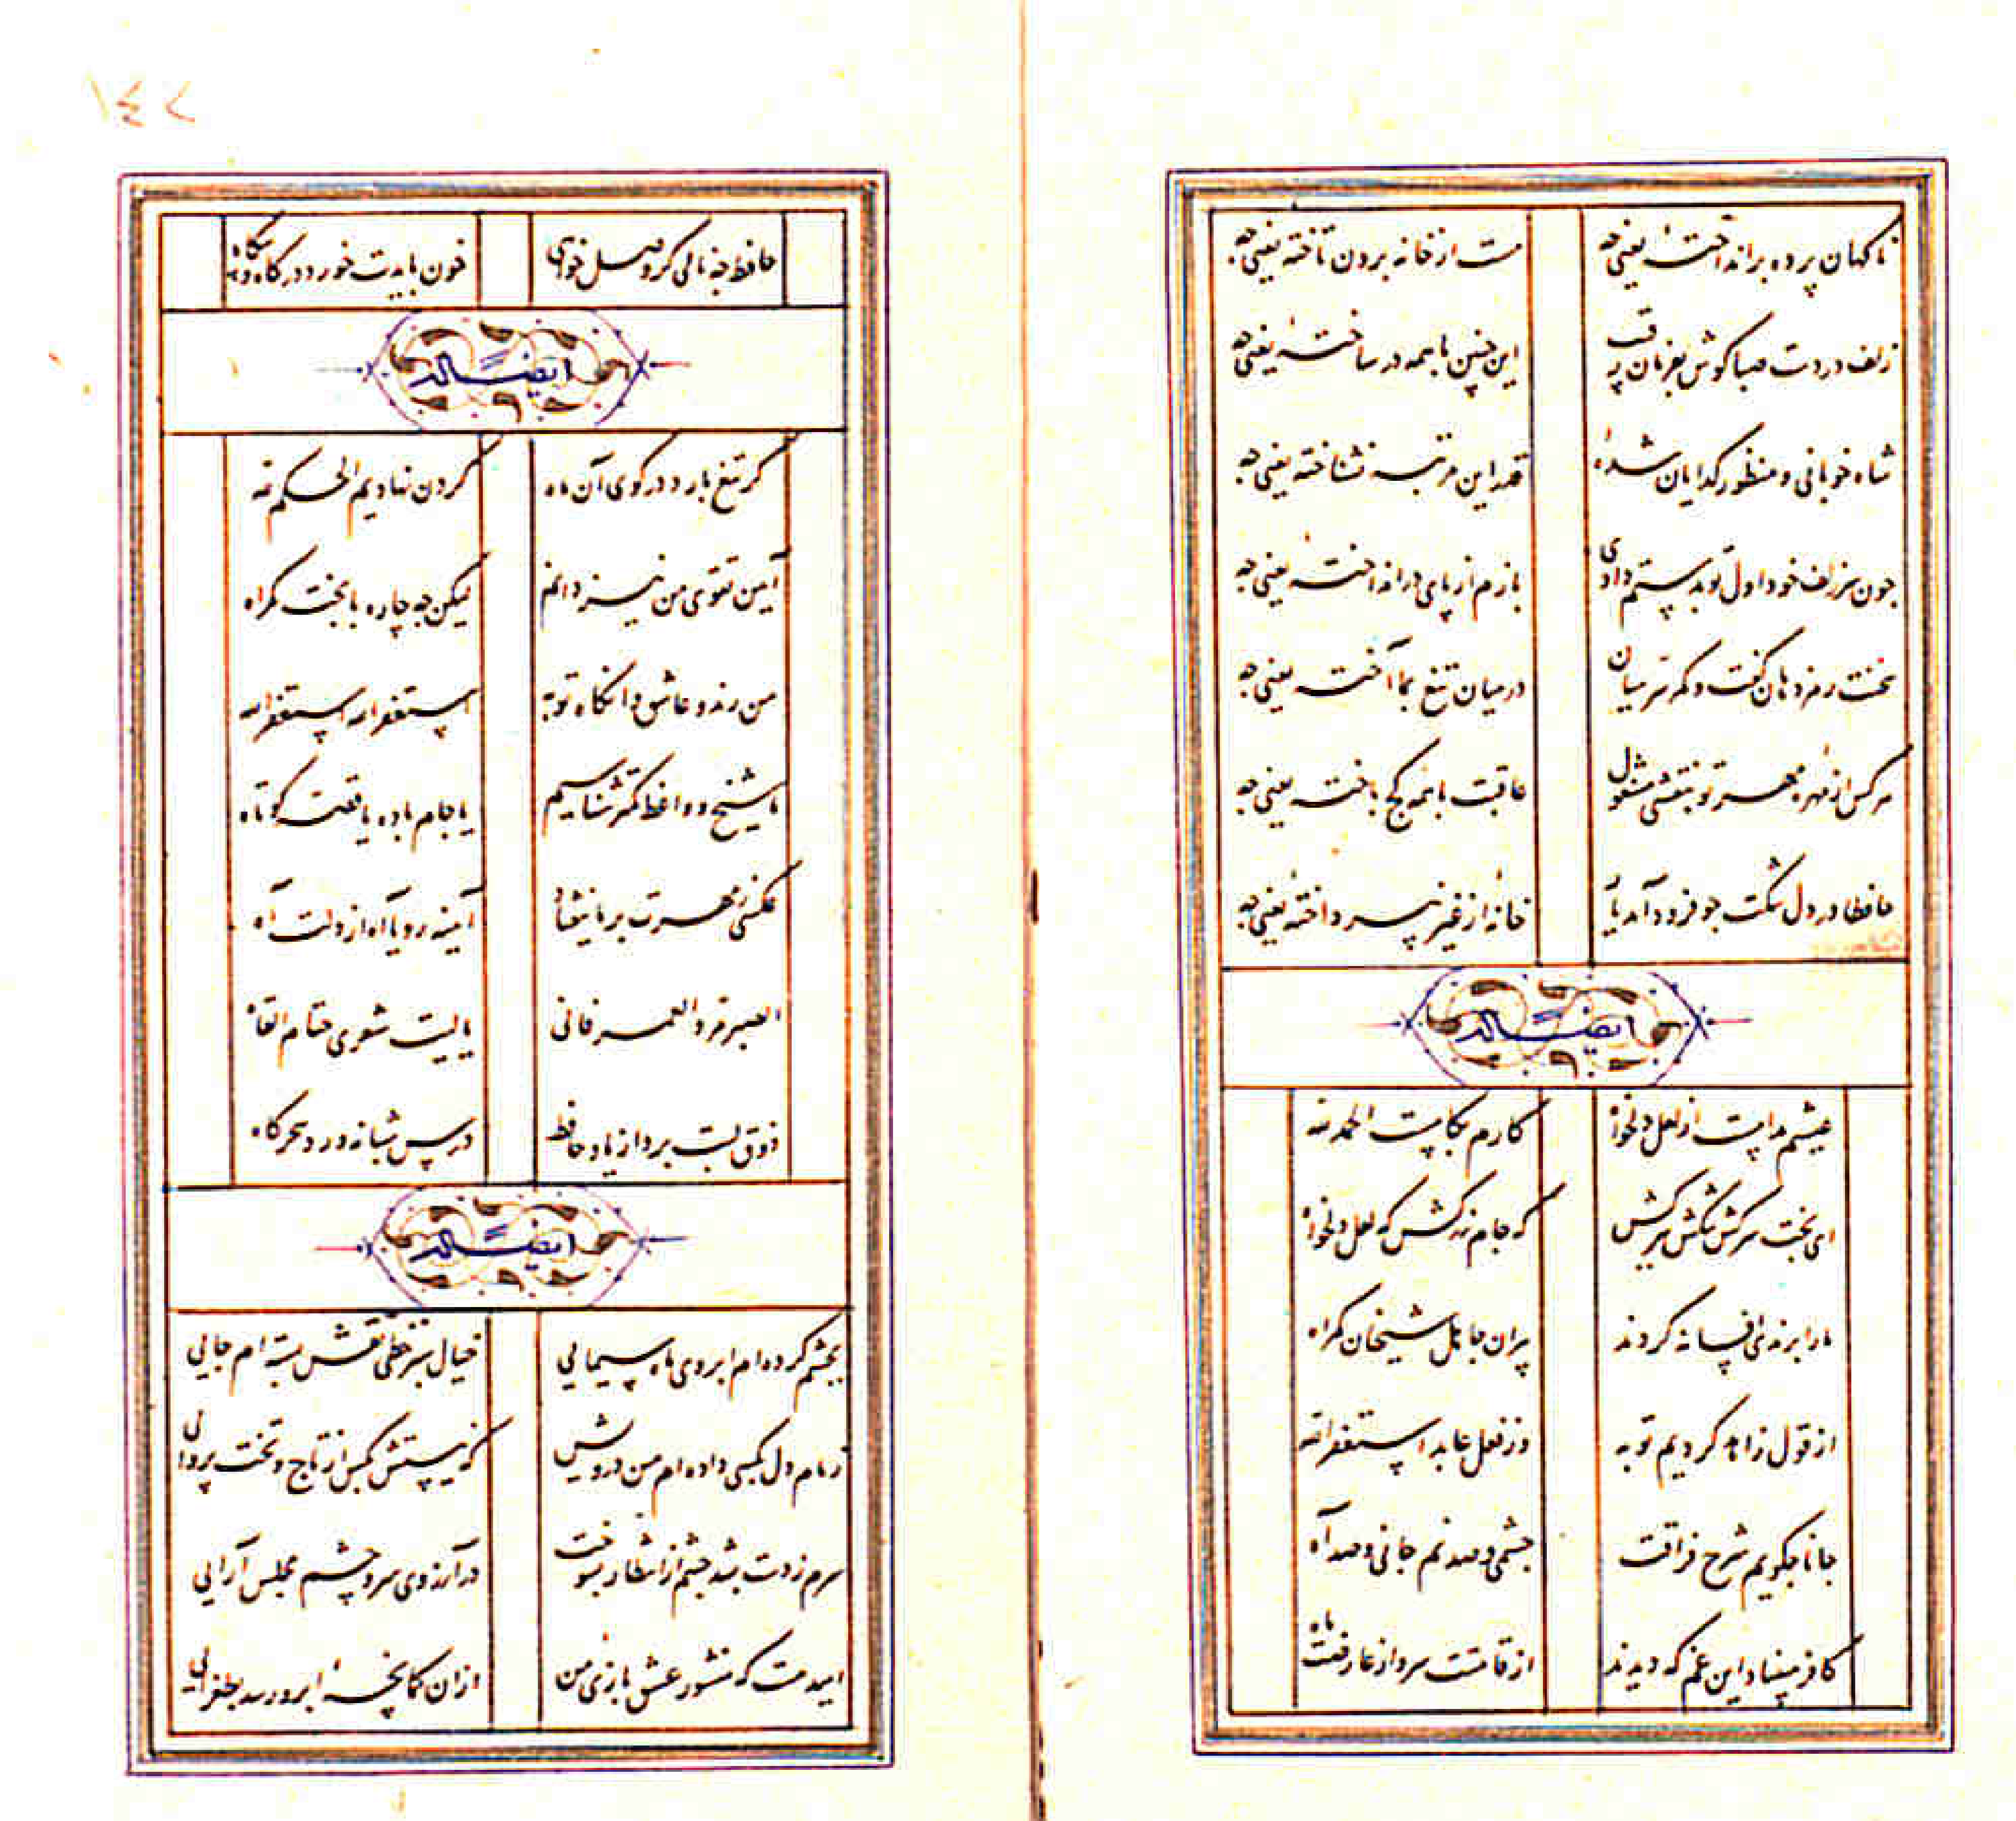 ناکهان پرده برانداختهٔ یعنی چه مست از خانه برون تاختهٔ یعنی چه
زلف در دست صبا کوش بفرمان رقیب این چنین با همه در ساختهٔ یعنی چه
شاه خوبانی و منظور کدایان شدهٔ قدر این مرتبه نشناختهٔ یعنی چه
چون سر زلف خود اول تو بدستم دادی بازم از پای در انداختهٔ یعنی چه
سخنت رمز دهان کفت و کمر سر میان در میان تیغ بما آختهٔ یعنی چه
هر کس از مهرهٔ مهر تو بنقشی مشغول عاقبت با همه کج باختهٔ یعنی چه
حافظا در دل تنکت چو فرود آمد یار خانه از غیر نپرداختهٔ یعنی چه
ایضاً له
عیشم مدامست از لعل دلخواه کارم بکامست الحمد لله
ای بخت سرکش تنکش ببر کش که جام زر کش که لعل دلخواه
ما را برندی افسانه کردند پیران جاهل شیخان کمراه
از قول زاهد کردیم توبه وز فعل عابد استغفر الله
جانا چکویم شرح فراقت چشمی و صد نم جانی و صد آه
کافر مبیناد این غم که دیدند از قامتت سرو از عارضت ماه
١٤٢
حافظ چه نالی کر وصل خواهی خون بایدت خورد در کاه و بیکاه
ایضاً له
کر تیغ بارد در کوی آن ماه کردن نهادیم الحکم لله
آیین تقوی من نیز دانم لیکن چه چاره با بخت کمراه
من رند و عاشق وانکاه توبه استغفر الله استغفر الله
ما شیخ و واعظ کمتر شناسیم یا جام باده یا قصه کوتاه
عکسی ز مهرت بر ما نیفتاد آیینه رویا آه از دلت آه
الصبر مر و العمر فانی یا لیت شعری حتام القاه
ذوق لبت برد از یاد حافظ درس شبانه ورد سحرکاه
ایضاً له
بچشم کرده ام ابروی ماه سیمایی خیال سبز خطی نقش بسته ام جایی
زمام دل بکسی داده ام من درویش که نیستش بکس از تاج و تخت پروایی
سرم ز دست بشد چشم از انتظار بسوخت در آرزوی سر و چشم مجلس آرایی
امید هست که منشور عشق بازی من از ان کمانچهٔ ابرو رسد بطغرایی